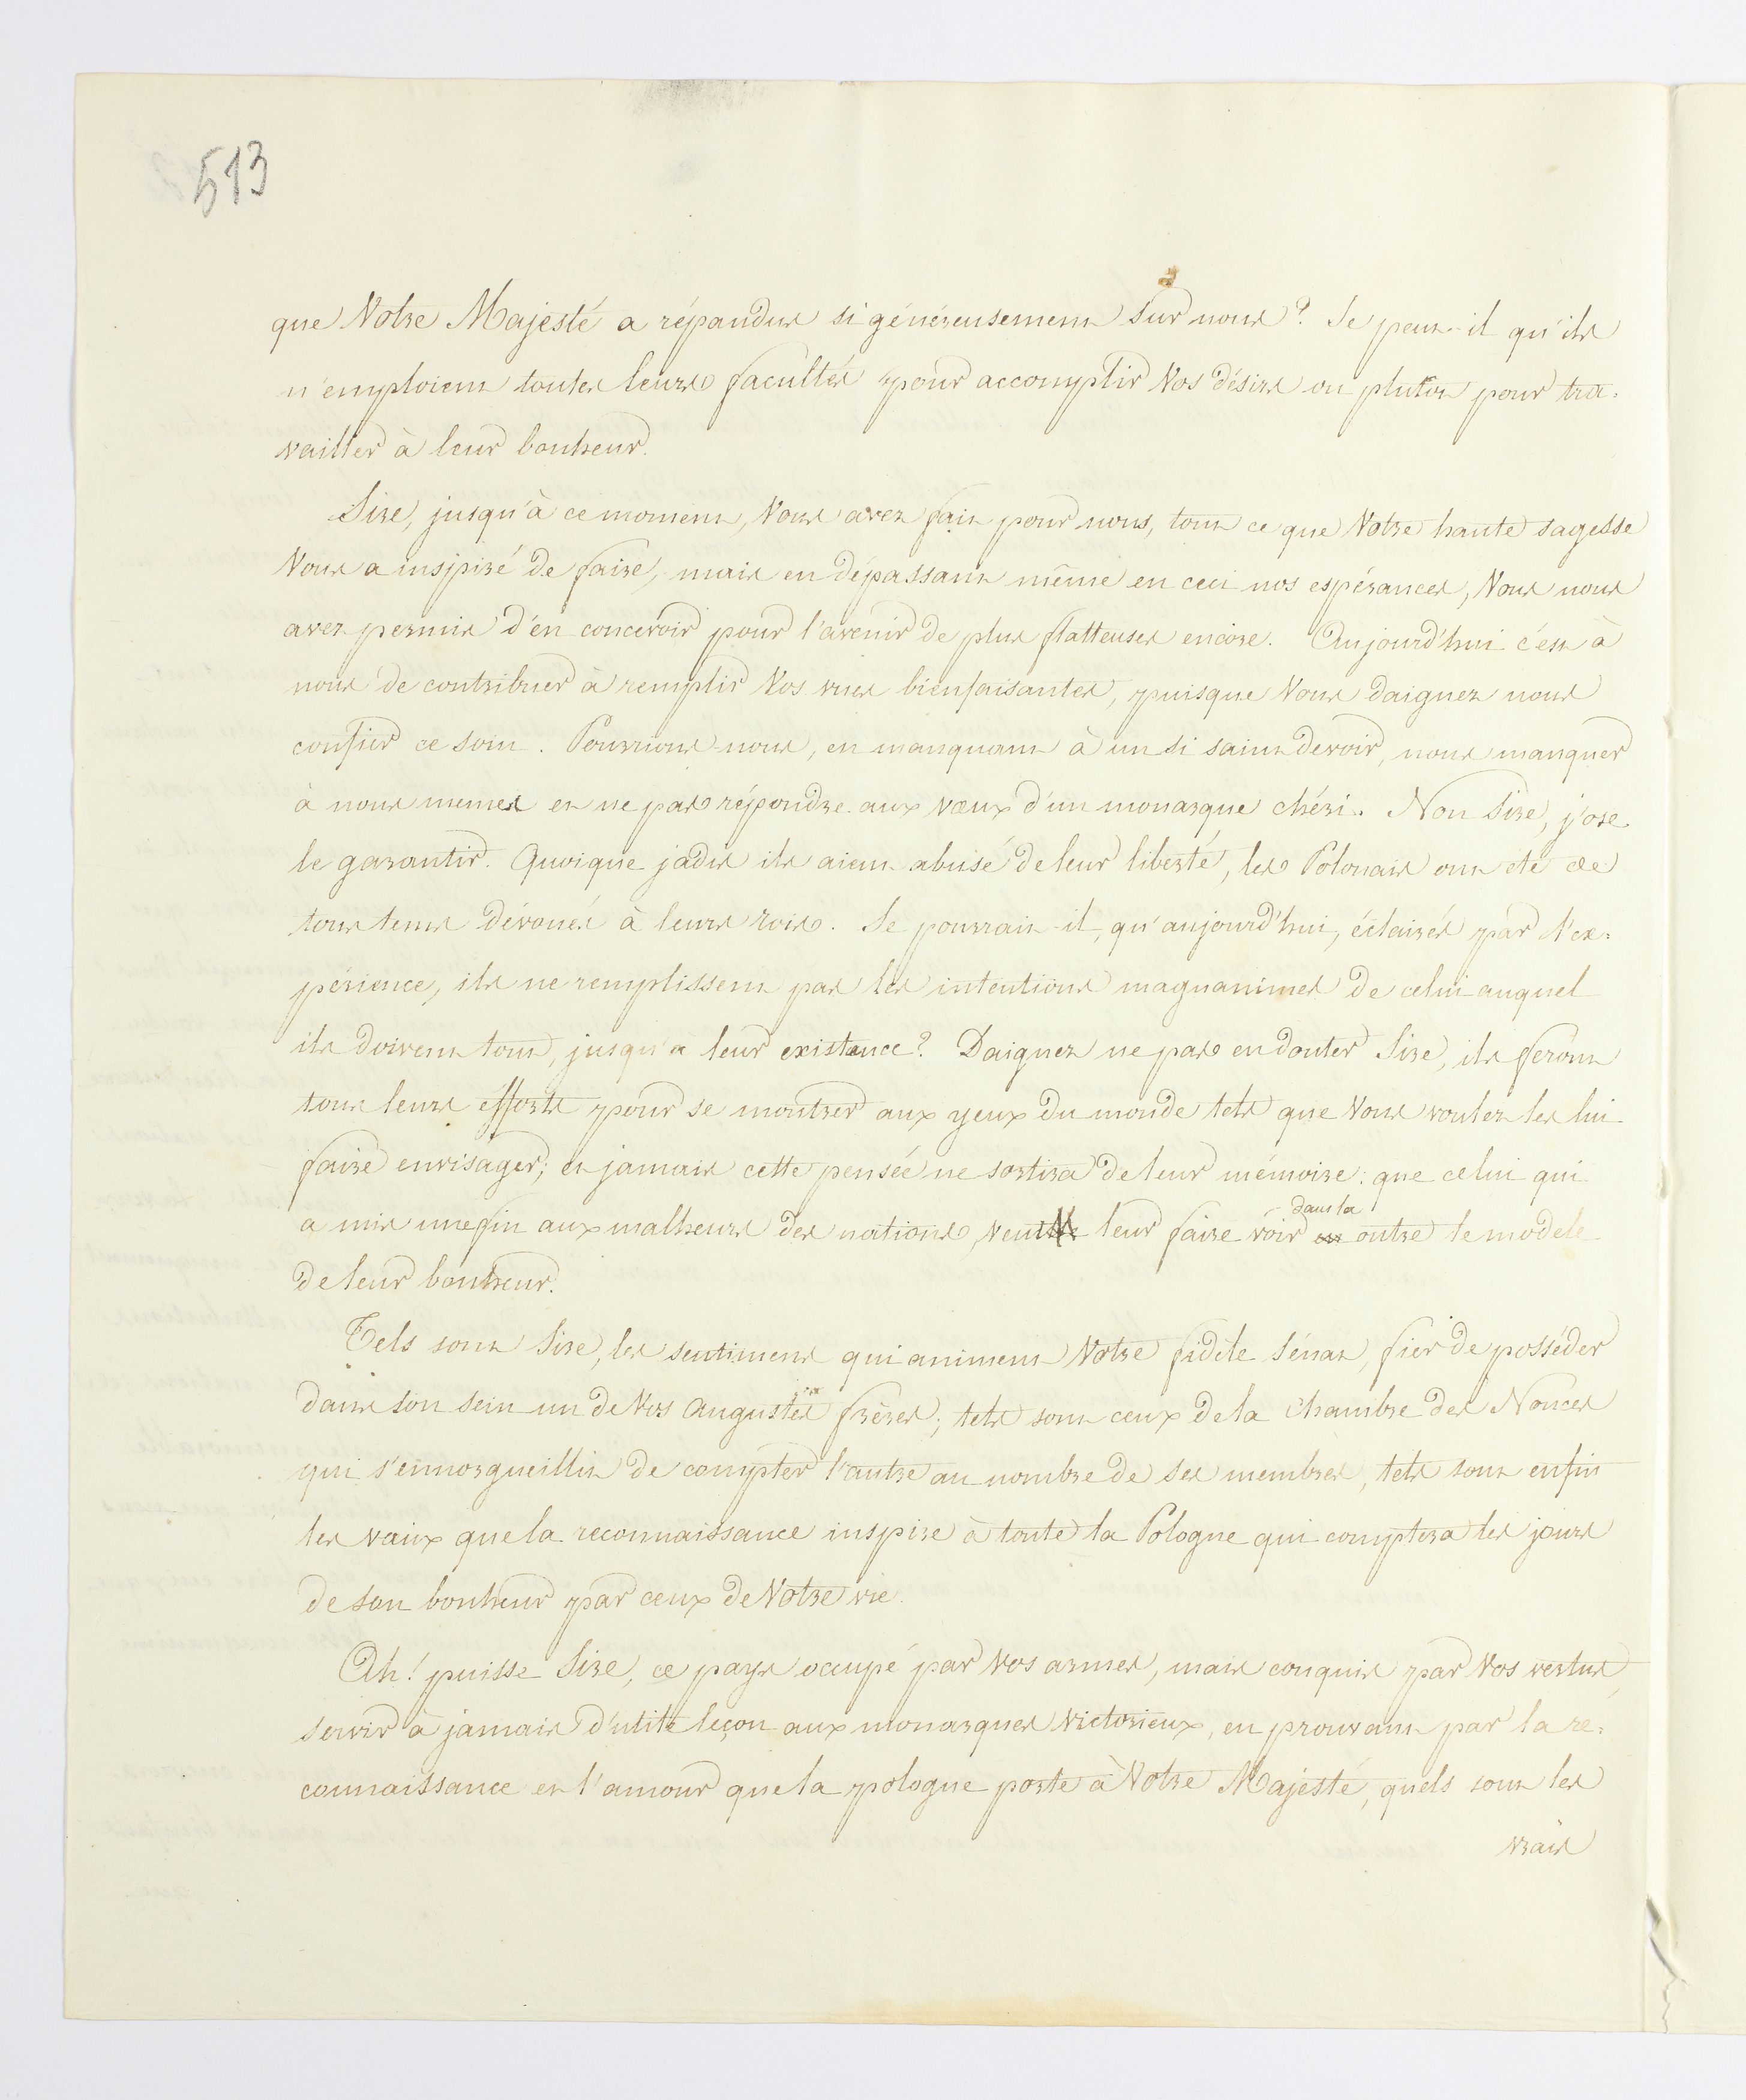 513
que Votre Majesté a répandus si généreusement sur nous? Se peut-il qu'ils
n'emploient toutes leurs facultés pour accomplir Vos désirs ou plutot pour tra-
vailler à leur bonheur.
Sire, jusqu'à ce moment, Vous avez fait pour nous, tout ce que Votre haute sagesse
Vous a inspiré de faire, mais en dépassant même en ceci nos espérances, Vous nous
avez permis d'en concevoir pour l'avenir de plus flatteuses encore. Aujourd'hui c'est à
nous de contribuer à remplir Vos vues bienfaisantes, puisque Vous daignez nous
confier ce soin. Pourrions-nous, en manquant à un si saint devoir, nous manquer
à nous memes et ne pas répondre aux vœux d'un monarque chéri. Non Sire, j'ose
le garantir. Quoique jadis ils aient abusé de leur liberté, les Polonais ont eté de
tous tems dévoués à leurs rois. Se pourrait-il, qu'aujourd'hui, éclairés par l'ex-
périence, ils ne remplissent pas les intentions magnanimes de celui auquel
ils doivent tout, jusqu'a leur existance? Daignez ne pas en douter Sire, ils feront
tous leurs éfforts pour se montrer aux yeux du monde tels que Vous voulez les lui
faire envisager; et jamais cette pensée ne sortira de leur mémoire: que celui qui
a mis une fin aux malheurs des nations, veut leur faire voir dans la notre le modele
de leur bonheur.
Tels sont Sire, les sentimens qui animent Votre fidele Sénat, fier de posséder
dans son sein un de Vos augustes frères; tels sont ceux de la Chambre des Nonces
qui s'ennorgueillit de compter l'autre au nombre de ses membres, tels sont enfin
les vœux que la reconnaissance inspire à toute la Pologne qui comptera les jours
de son bonheur par ceux de Votre vie.
Ah! puisse Sire, ce pays occupé par Vos armes, mais conquis par Vos vertus,
servir à jamais d'utile leçon aux monarques victorieux, en prouvant par la re-
connaissance et l'amour que la pologne porte à Votre Majesté, quels sont les
vrais